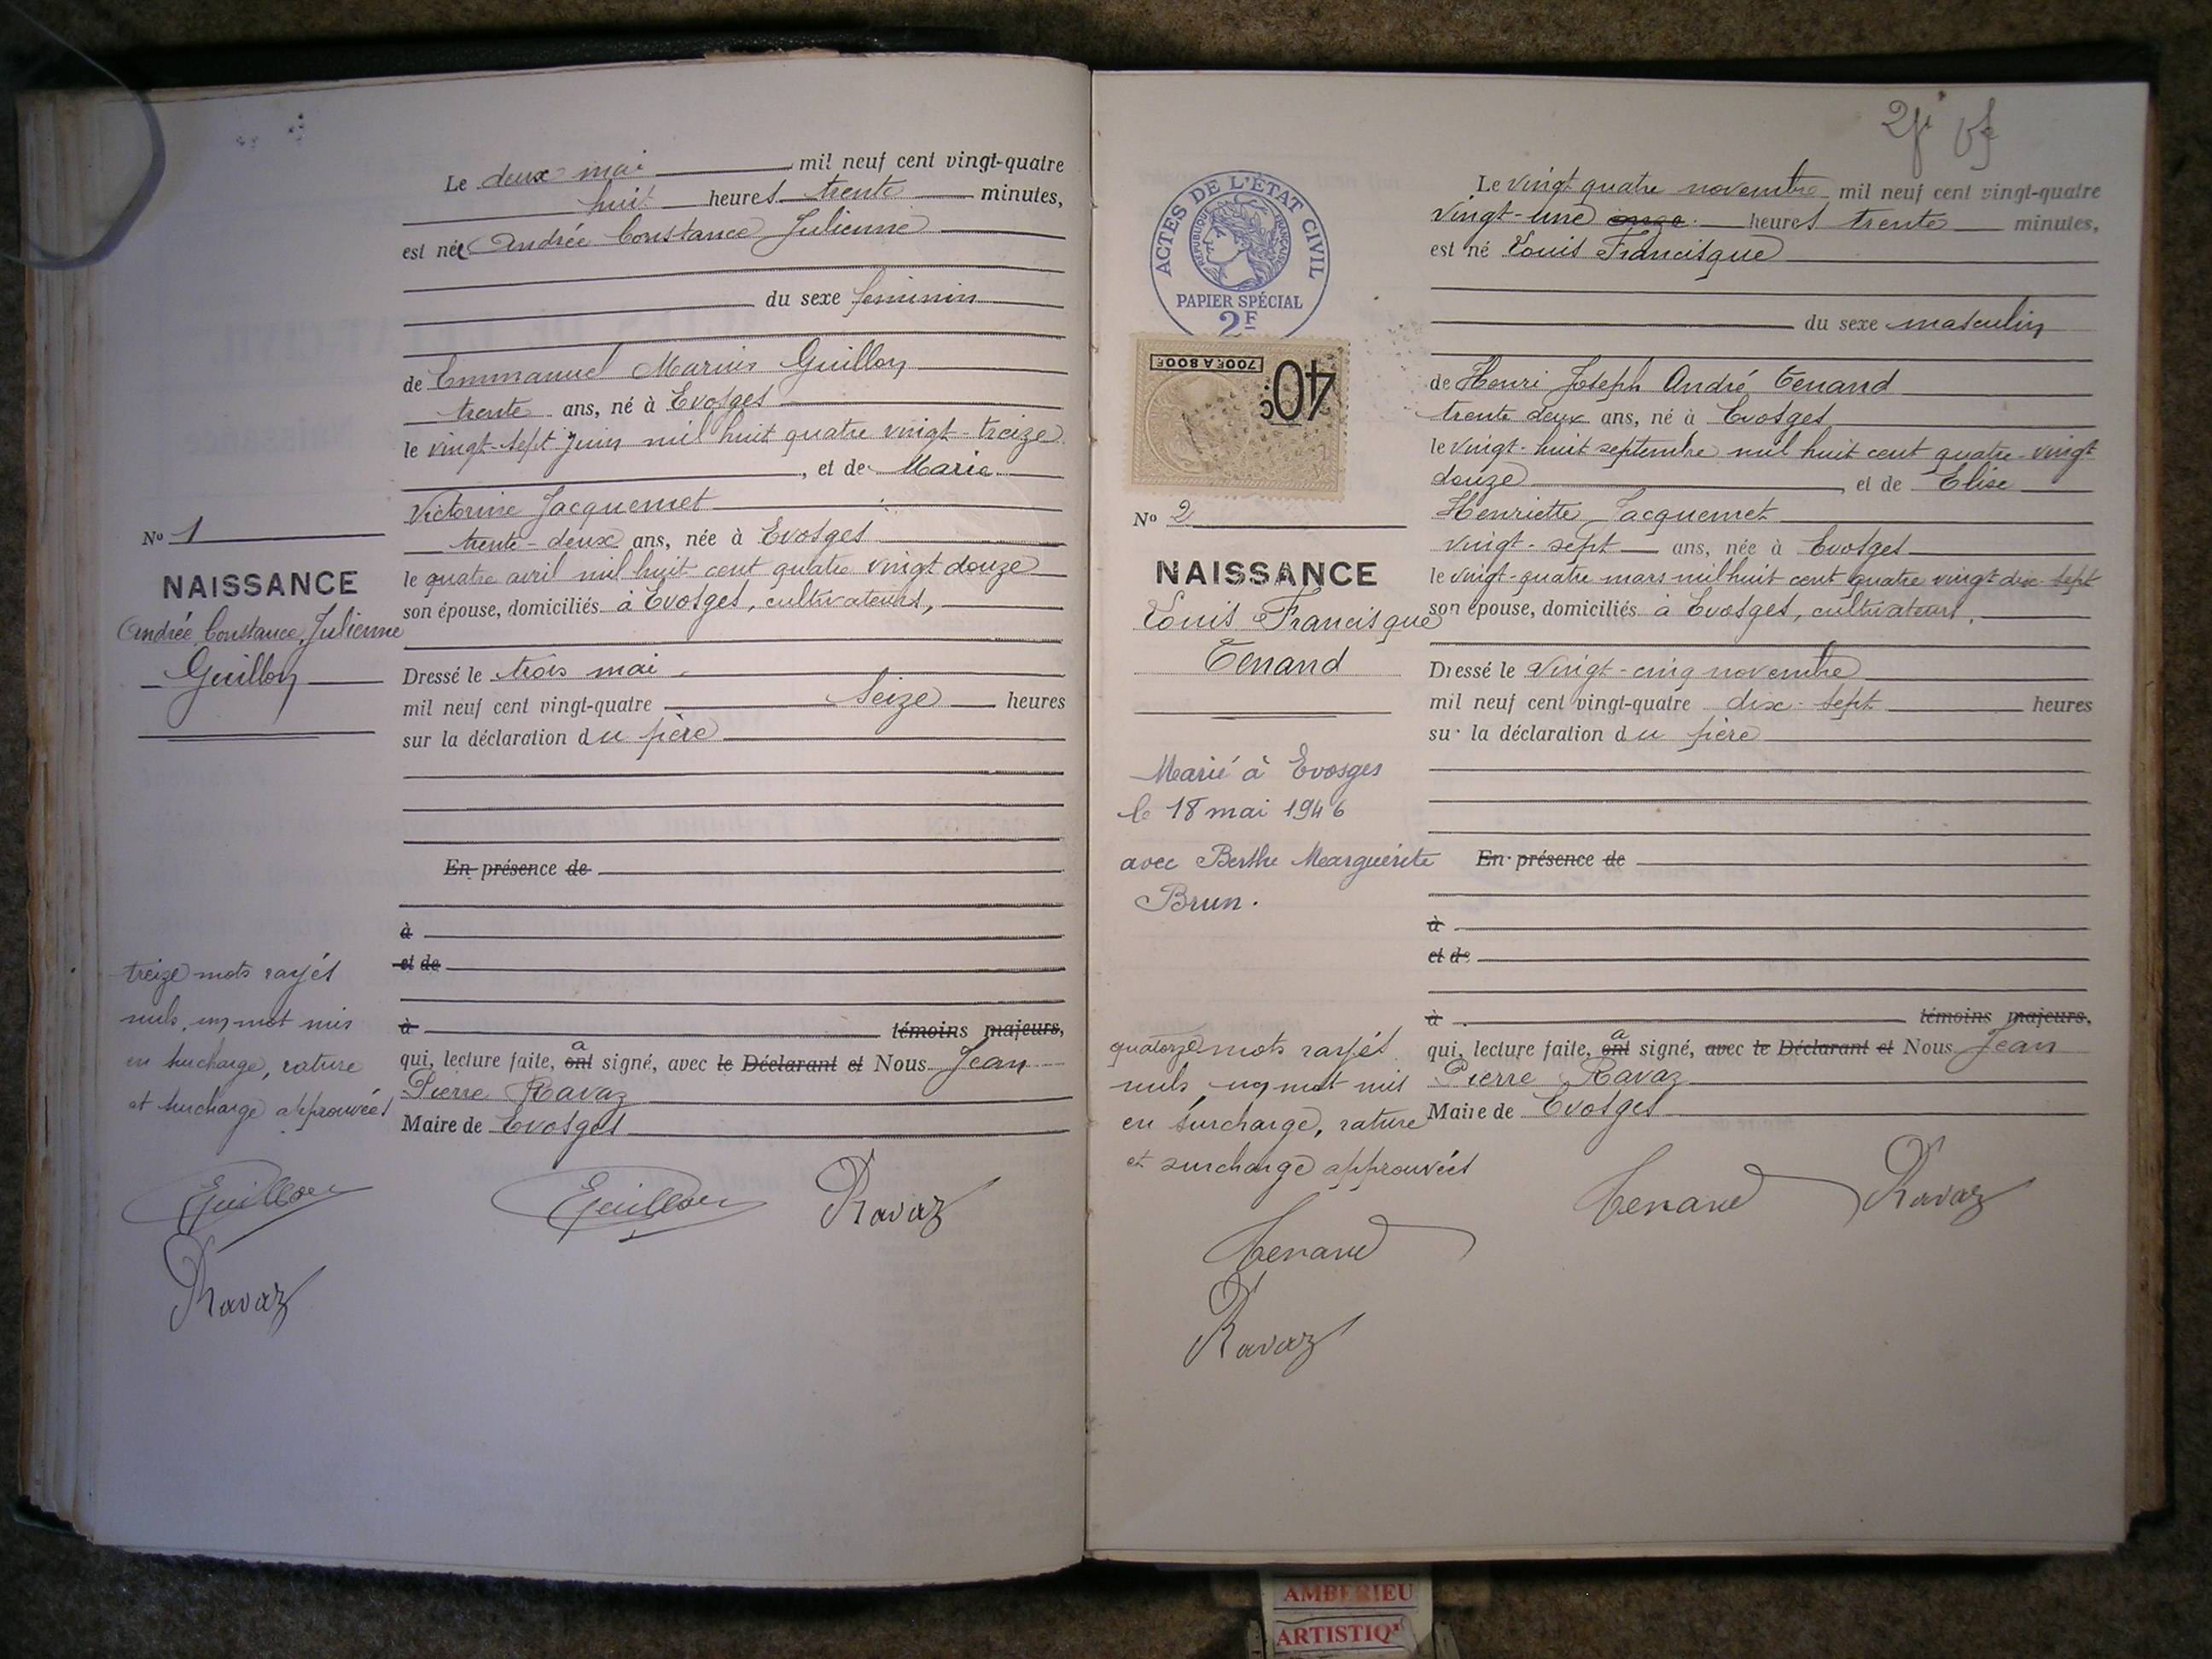 Le deux mai mil neuf cent vingt-quatre
huit heures trente minutes,
est née Andrée Constance Julienne
du sexe feminin
de Emmanuel Marius Guillon
trente ans, né à Evosges
le vingt-sept juin mil huit quatre vingt-treize
, et de Marie
Victorine Jacquemet
trente-deux ans, née à Evosges
le quatre avril mil huit cent quatre vingt douze
son épouse, domiciliés à Evosges, cultivateurs,
Dressé le trois mai
mil neuf cent vingt-quatre seize heures
sur la déclaration du père
En présence de
à
et de
à témoins majeurs,
a
qui, lecture faite, ont signé, avec le Déclarant et Nous Jean
Pierre Ravaz
Maire de Evosges
No 1
NAISSANCE
Andrée Constance Julienne
Guillon
treize mots rayés
nuls, un mot mis
en surcharge, rature
et surcharge approuvées
Guillon
Ravaz
Guillon
Ravaz
ACTES DE L'ÉTAT CIVIL
RÉPUBLIQUE FRANÇAISE
PAPIER SPÉCIAL
2F
700F. A 800F.
40c.
No 2
NAISSANCE
Louis Francisque
Tenand
Marié à Evosges
le 18 mai 1946
avec Berthe Marguerite
Brun.
quatorze mots rayés
nuls, un mot mis
en surcharge, rature
et surcharge approuvées
Tenand
Ravaz
Le vingt quatre novembre mil neuf cent vingt-quatre
vingt-une onze heures trente minutes,
est né Louis Francisque
du sexe masculin
de Henri Joseph André Tenand
trente deux ans, né à Evosges
le vingt-huit septembre mil huit cent quatre-vingt
douze , et de Elise
Henriette Jacquemet
vingt-sept ans, née à Evosges
le vingt-quatre mars mil huit cent quatre vingt dix-sept
son épouse, domiciliés à Evosges, cultivateurs,
Dressé le vingt-cinq novembre
mil neuf cent vingt-quatre dix-sept heures
sur la déclaration du père
En présence de
à
et de
à témoins majeurs,
a
qui, lecture faite, ont signé, avec le Déclarant et Nous Jean
Pierre Ravaz
Maire de Evosges
Tenand
Ravaz
AMBERIEU
ARTISTIQ